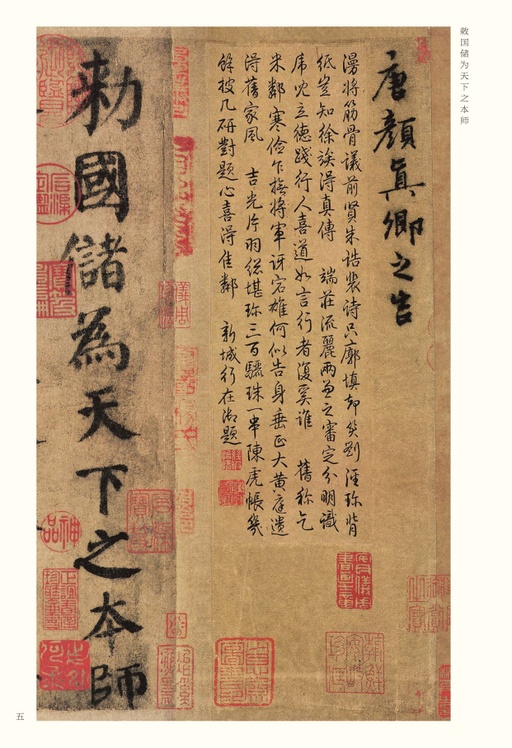 敕国储为天下之本师
唐顏真卿之告
漫将筋骨議前賢朱誥裴诗只廓填却笑劉涇珍背
纸豈知徐得真傳 端莊流麗两兼之審定分明識
立德踐行人喜道如言行者復奚谁 舊称乞
米鄰寒儉乍撫将軍讶宕雄何似告身垂正大黄庭遺
得舊家風 吉光片羽総堪珍三百驪珠一串陳虎帳幾
餘披几研對題心喜得佳鄰 新城行在御題
勅國儲為天下之本師
神品
五